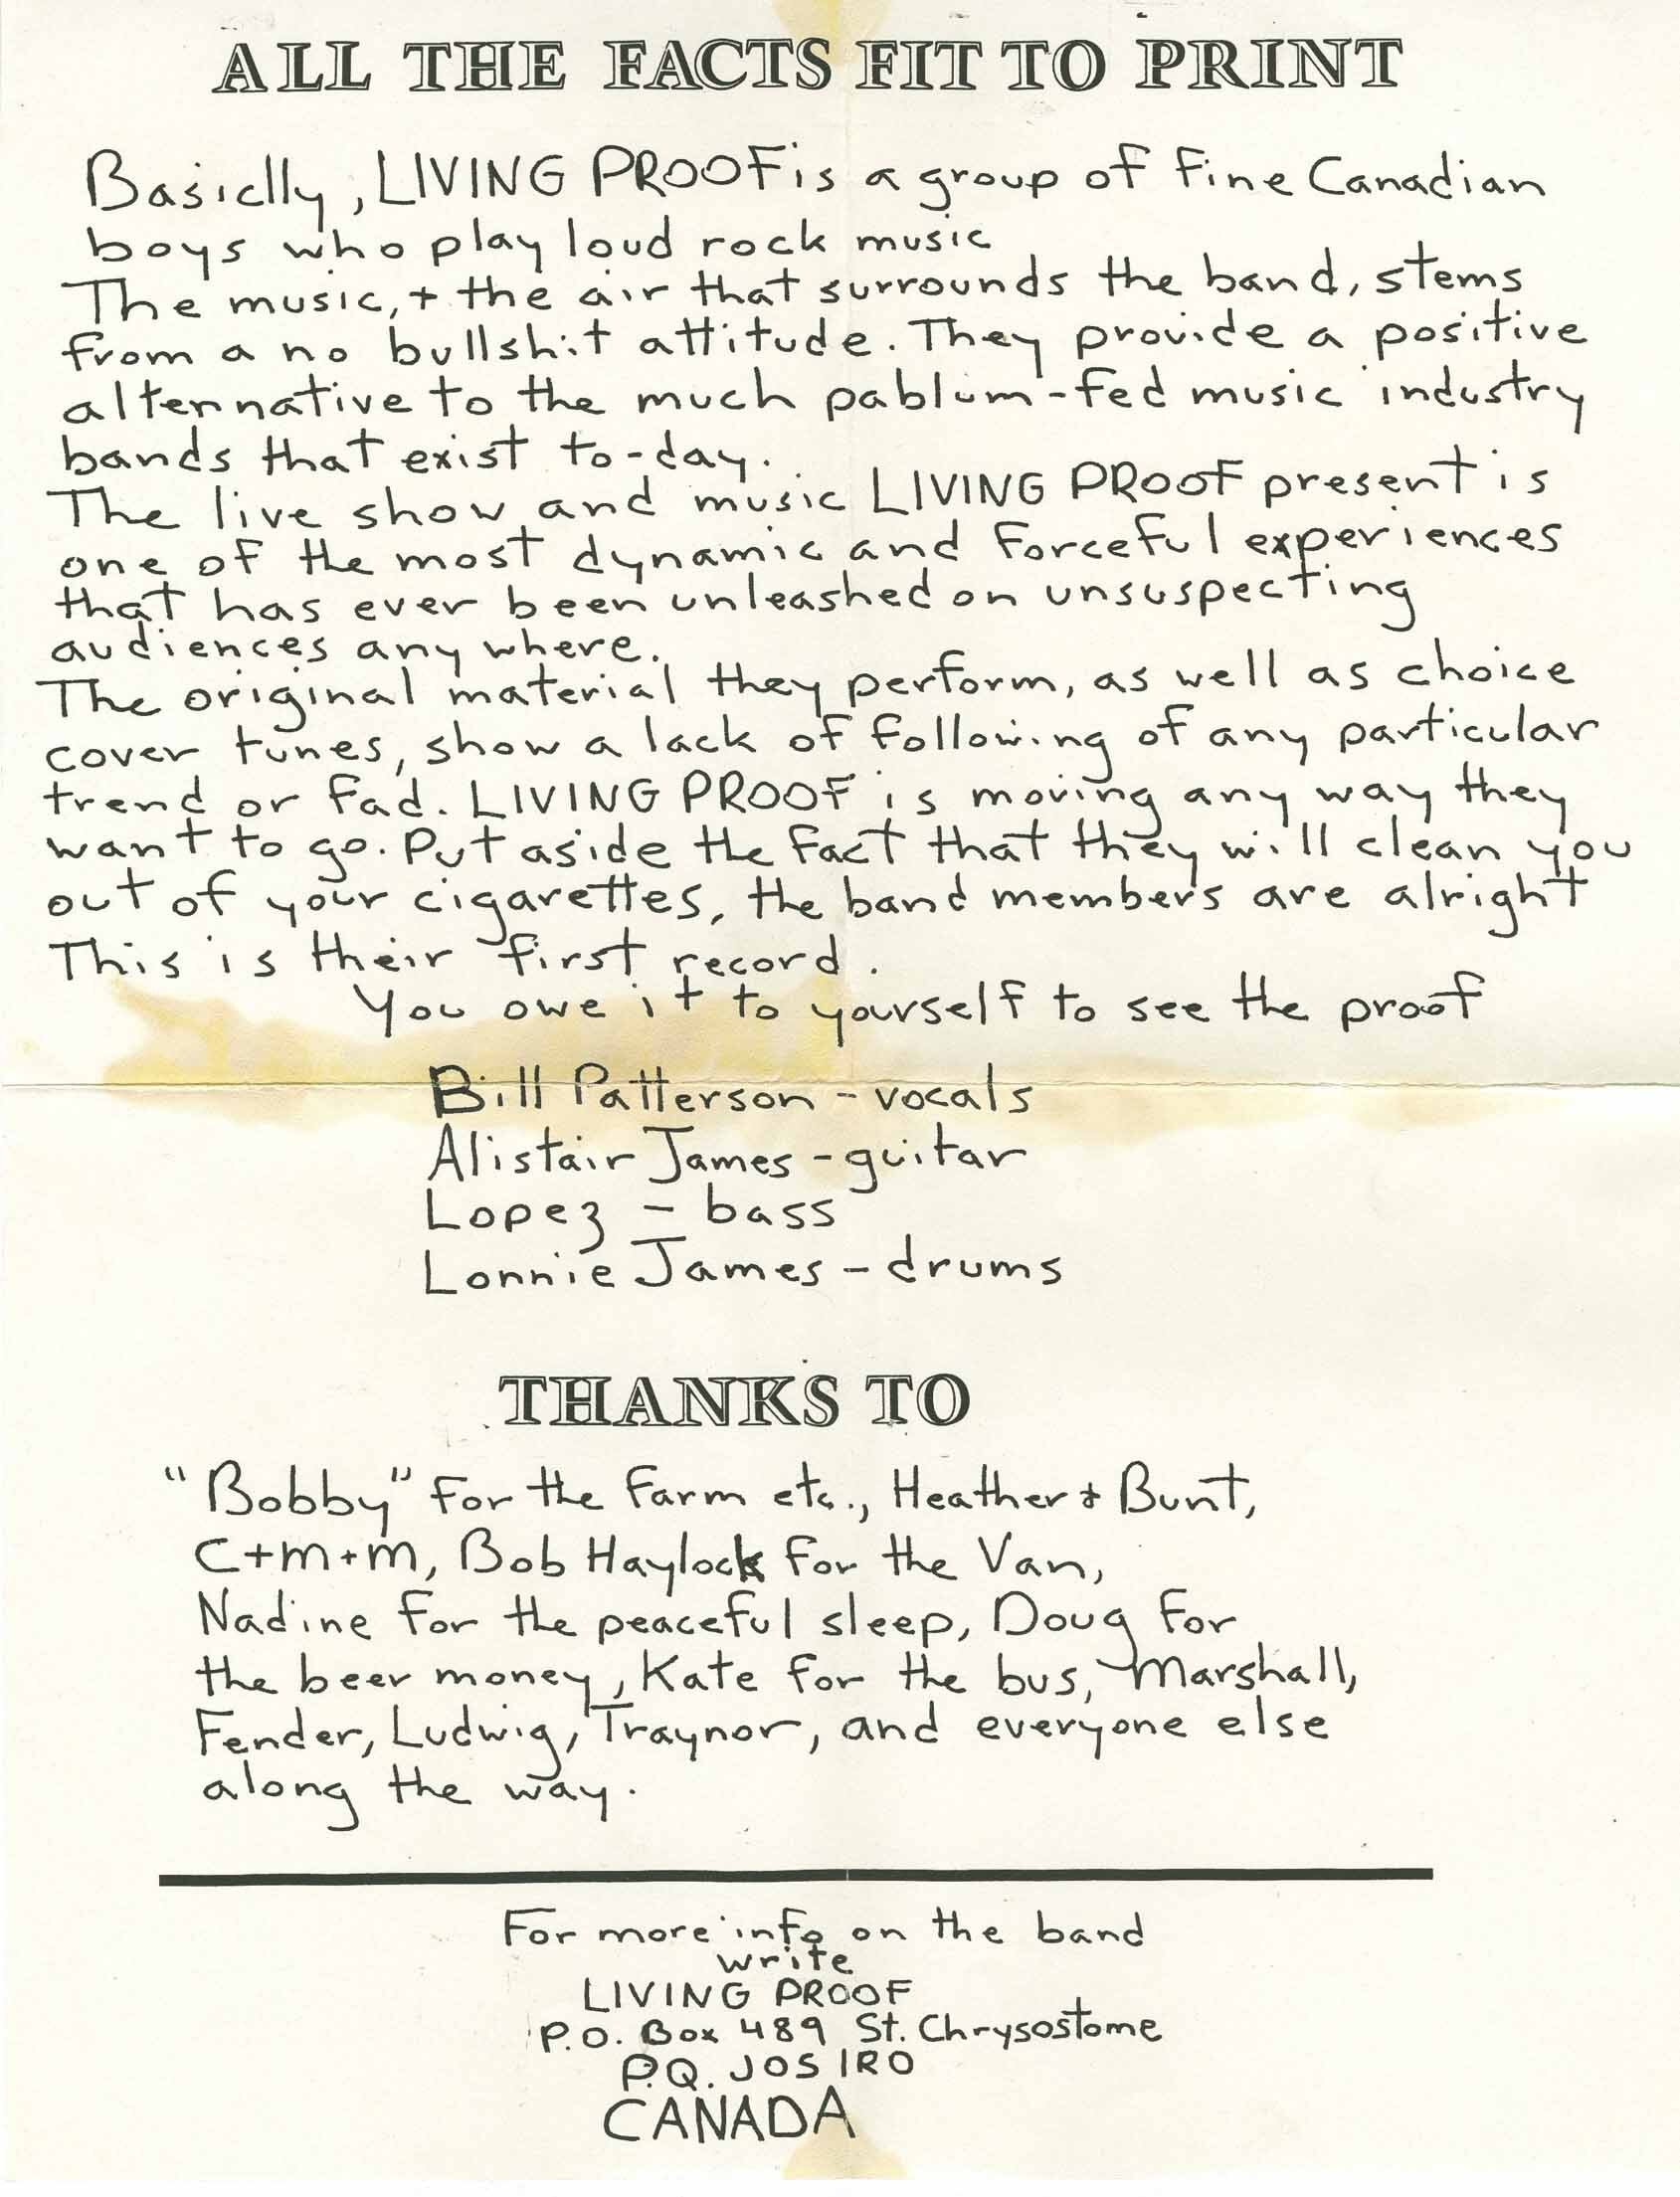 ALL THE FACTS FIT TO PRINT
Basiclly, LIVING PROOF is a group of fine Canadian
boys who play loud rock music
The music, + the air that surrounds the band, stems
from a no bullshit attitude. They provide a positive
alternative to the much pablum-fed music industry
bands that exist to-day.
The live show and music LIVING PROOF present is
one of the most dynamic and forceful experiences
that has ever been unleashed on unsuspecting
audiences anywhere.
The original material they perform, as well as choice
cover tunes, show a lack of following of any particular
trend or fad. LIVING PROOF is moving any way they
want to go. Put aside the fact that they will clean you
out of your cigarettes, the band members are alright
This is their first record.
You owe it to yourself to see the proof
Bill Patterson - vocals
Alistair James - guitar
Lopez - bass
Lonnie James - drums
THANKS TO
"Bobby" for the farm etc., Heather + Bunt,
C+m+m, Bob Haylock for the Van,
Nadine for the peaceful sleep, Doug for
the beer money, Kate for the bus, Marshall,
Fender, Ludwig, Traynor, and everyone else
along the way.
For more info on the band
write
LIVING PROOF
P.O. Box 489 St. Chrysostome
P.Q. JOS IRO
CANADA